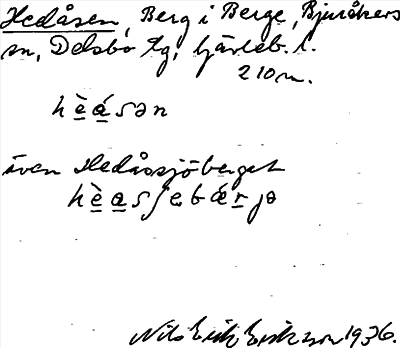 Hedåsen, Berg i Berge, Bjuråkers
sn, Delsbo tg, Gävleb. l.
210 m.
hè̱á̱sən
även Hedåssjöberget
hè̱a̱sʃebæ̱ṟjə
Nils Erik Eriksson 1936.